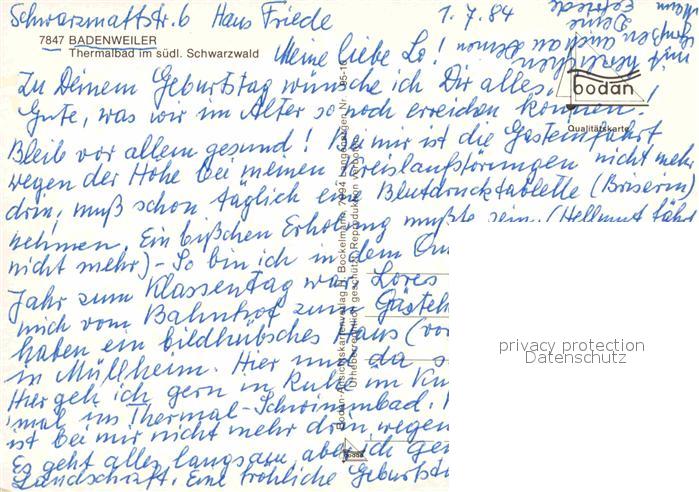 Schwarzmattstr. 6 Haus Friede 1.7.84
7847 BADENWEILER
Thermalbad im südl. Schwarzwald
Meine liebe Lo!
Zu Deinem Geburtstag wünsche ich Dir alles
Gute, was wir im Alter so noch erreichen können!
Bleib vor allem gesund! Bei mir ist die Gasteinfahrt
wegen der Höhe bei meinen Kreislaufstörungen nicht mehr
drin, muß schon täglich eine Blutdrucktablette (Briserin)
nehmen. Ein bißchen Erholung mußte sein. (Hellmut fährt
nicht mehr) - So bin ich in dem
Jahr zum Klassentag war Lores
mich vom Bahnhof zum Gästeh
haben ein bildhübsches Haus (vor
in Müllheim. Hier und da s
Hier geh ich gern in Ruhe im Kur
mal ins Thermal-Schwimmbad.
ist bei mir nicht mehr drin, wegen
Es geht alles langsam, aber ich gen
Landschaft. Eine fröhliche Geburtst
mit herzlichen
Grüßen auch an Deinen
Deine
bodan
Qualitätskarte
Bodan-Ansichtskartenverlag H. Bockelmann, 7994 Langenargen Nr. 85-10
Urheberrechtlich geschützt, Reproduktion verboten
bodan
privacy protection
Datenschutz